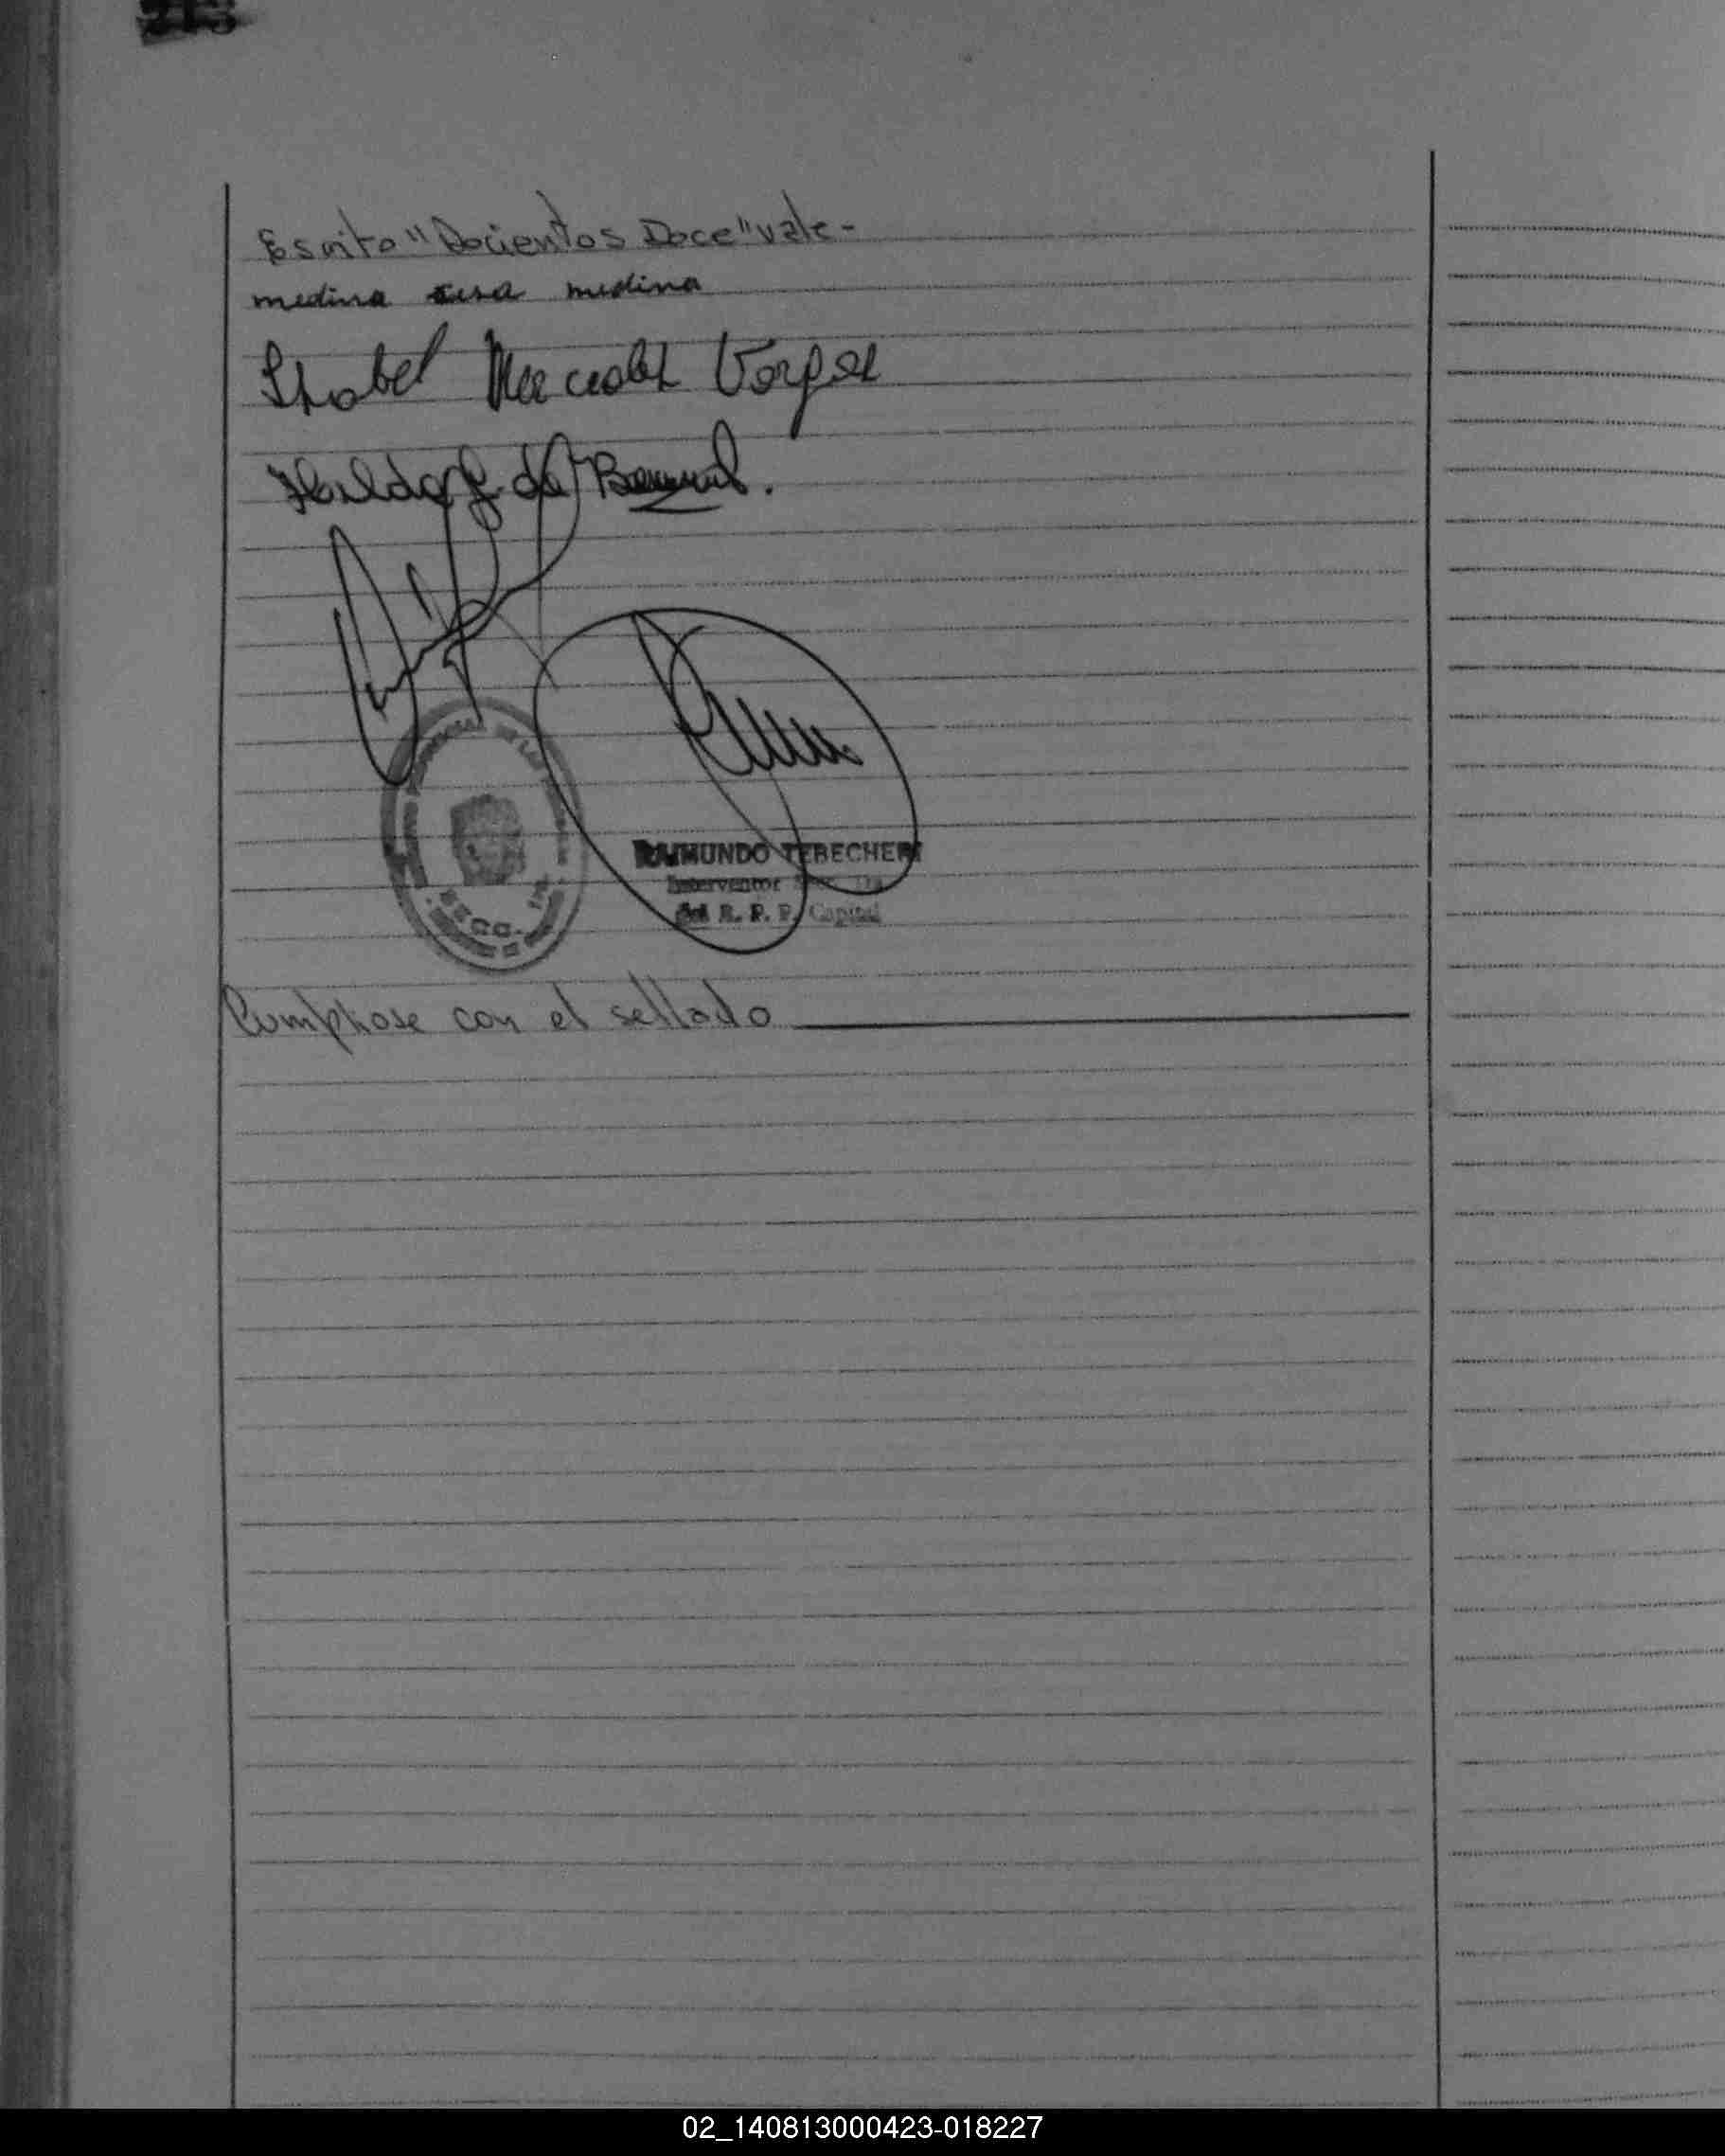 213
Escrito "Docientos Doce" vale-
medina rosa medina
Isabel Mercedes Vargas
Hilda de
RAIMUNDO TEBECHERI
Interventor
del R. P. P. Capital
Cumplase con el sellado
02_140813000423-018227